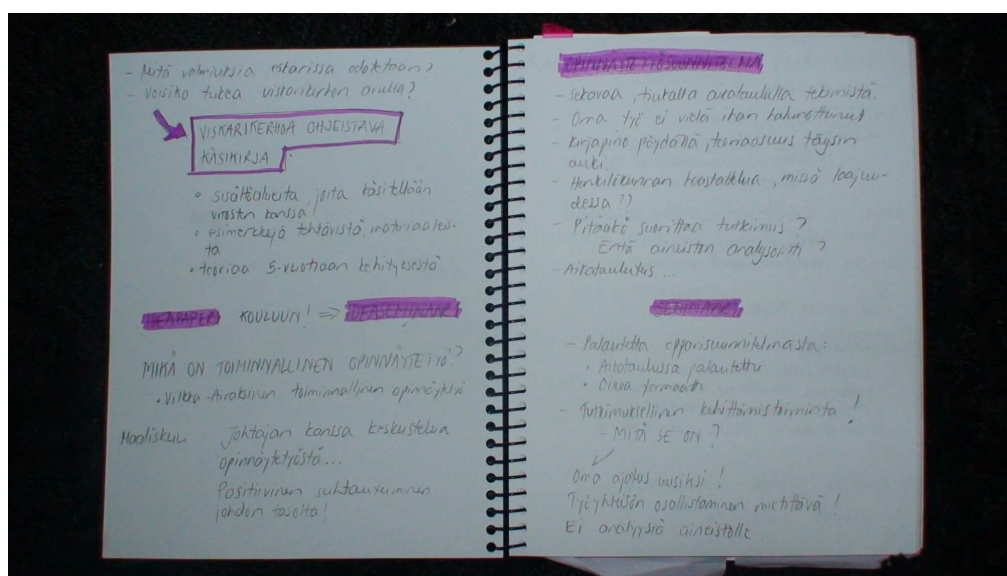 - Mitä valmiuksia eskarissa odotetaan?
- Voisiko tukea viskarikerhon avulla?
VISKARIKERHOA OHJEISTAVA
KÄSIKIRJA
• sisältöalueita, joita käsitellään
viskarien kanssa
• esimerkkejä tehtävistä, materiaaleis-
ta
• teoriaa 5-vuotiaan kehityksestä
IDEAPAPER KOULUUN! ⇒ IDEASEMINAARI
MIKÄ ON TOIMINNALLINEN OPINNÄYTETYÖ?
• Vilkka-Airaksinen toiminnallinen opinnäytetyö
Maaliskuu Johtajan kanssa keskustelua
opinnäytetyöstä...
Positiivinen suhtautuminen
johdon tasolta!
OPINNÄYTETYÖSUUNNITELMA
- Sekavaa, tiukalla aikataululla tekemistä.
- Oma työ ei vielä ihan hahmottunut
- Kirjapino pöydällä, teoriaosuus täysin
auki
- Henkilökunnan haastattelua, missä laajuu-
dessa??
- Pitääkö suorittaa tutkimus?
Entä aineiston analysointi?
- Aikataulutus...
SEMINAARI
- Palautetta opparisuunnitelmasta:
• Aikataulussa palautettu
• Oikea formaatti
- Tutkimuksellinen kehittämistoiminta!
- MITÄ SE ON?
Oma ajatus uusiksi!
Työyhteisön osallistaminen mietittävä!
Ei analyysiä aineistolle